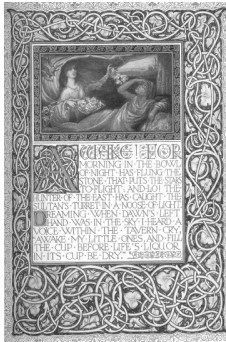 AWAKE FOR
MORNING IN THE BOWL
OF NIGHT HAS FLUNG THE
STONE THAT PUTS THE STARS
TO FLIGHT: AND LO! THE
HUNTER OF THE EAST HAS CAUGHT THE
SULTAN'S TURRET IN A NOOSE OF LIGHT.
DREAMING WHEN DAWN'S LEFT
HAND WAS IN THE SKY I HEARD A
VOICE WITHIN THE TAVERN CRY,
"AWAKE MY LITTLE ONES, AND FILL
THE CUP BEFORE LIFE'S LIQUOR
IN ITS CUP BE DRY."